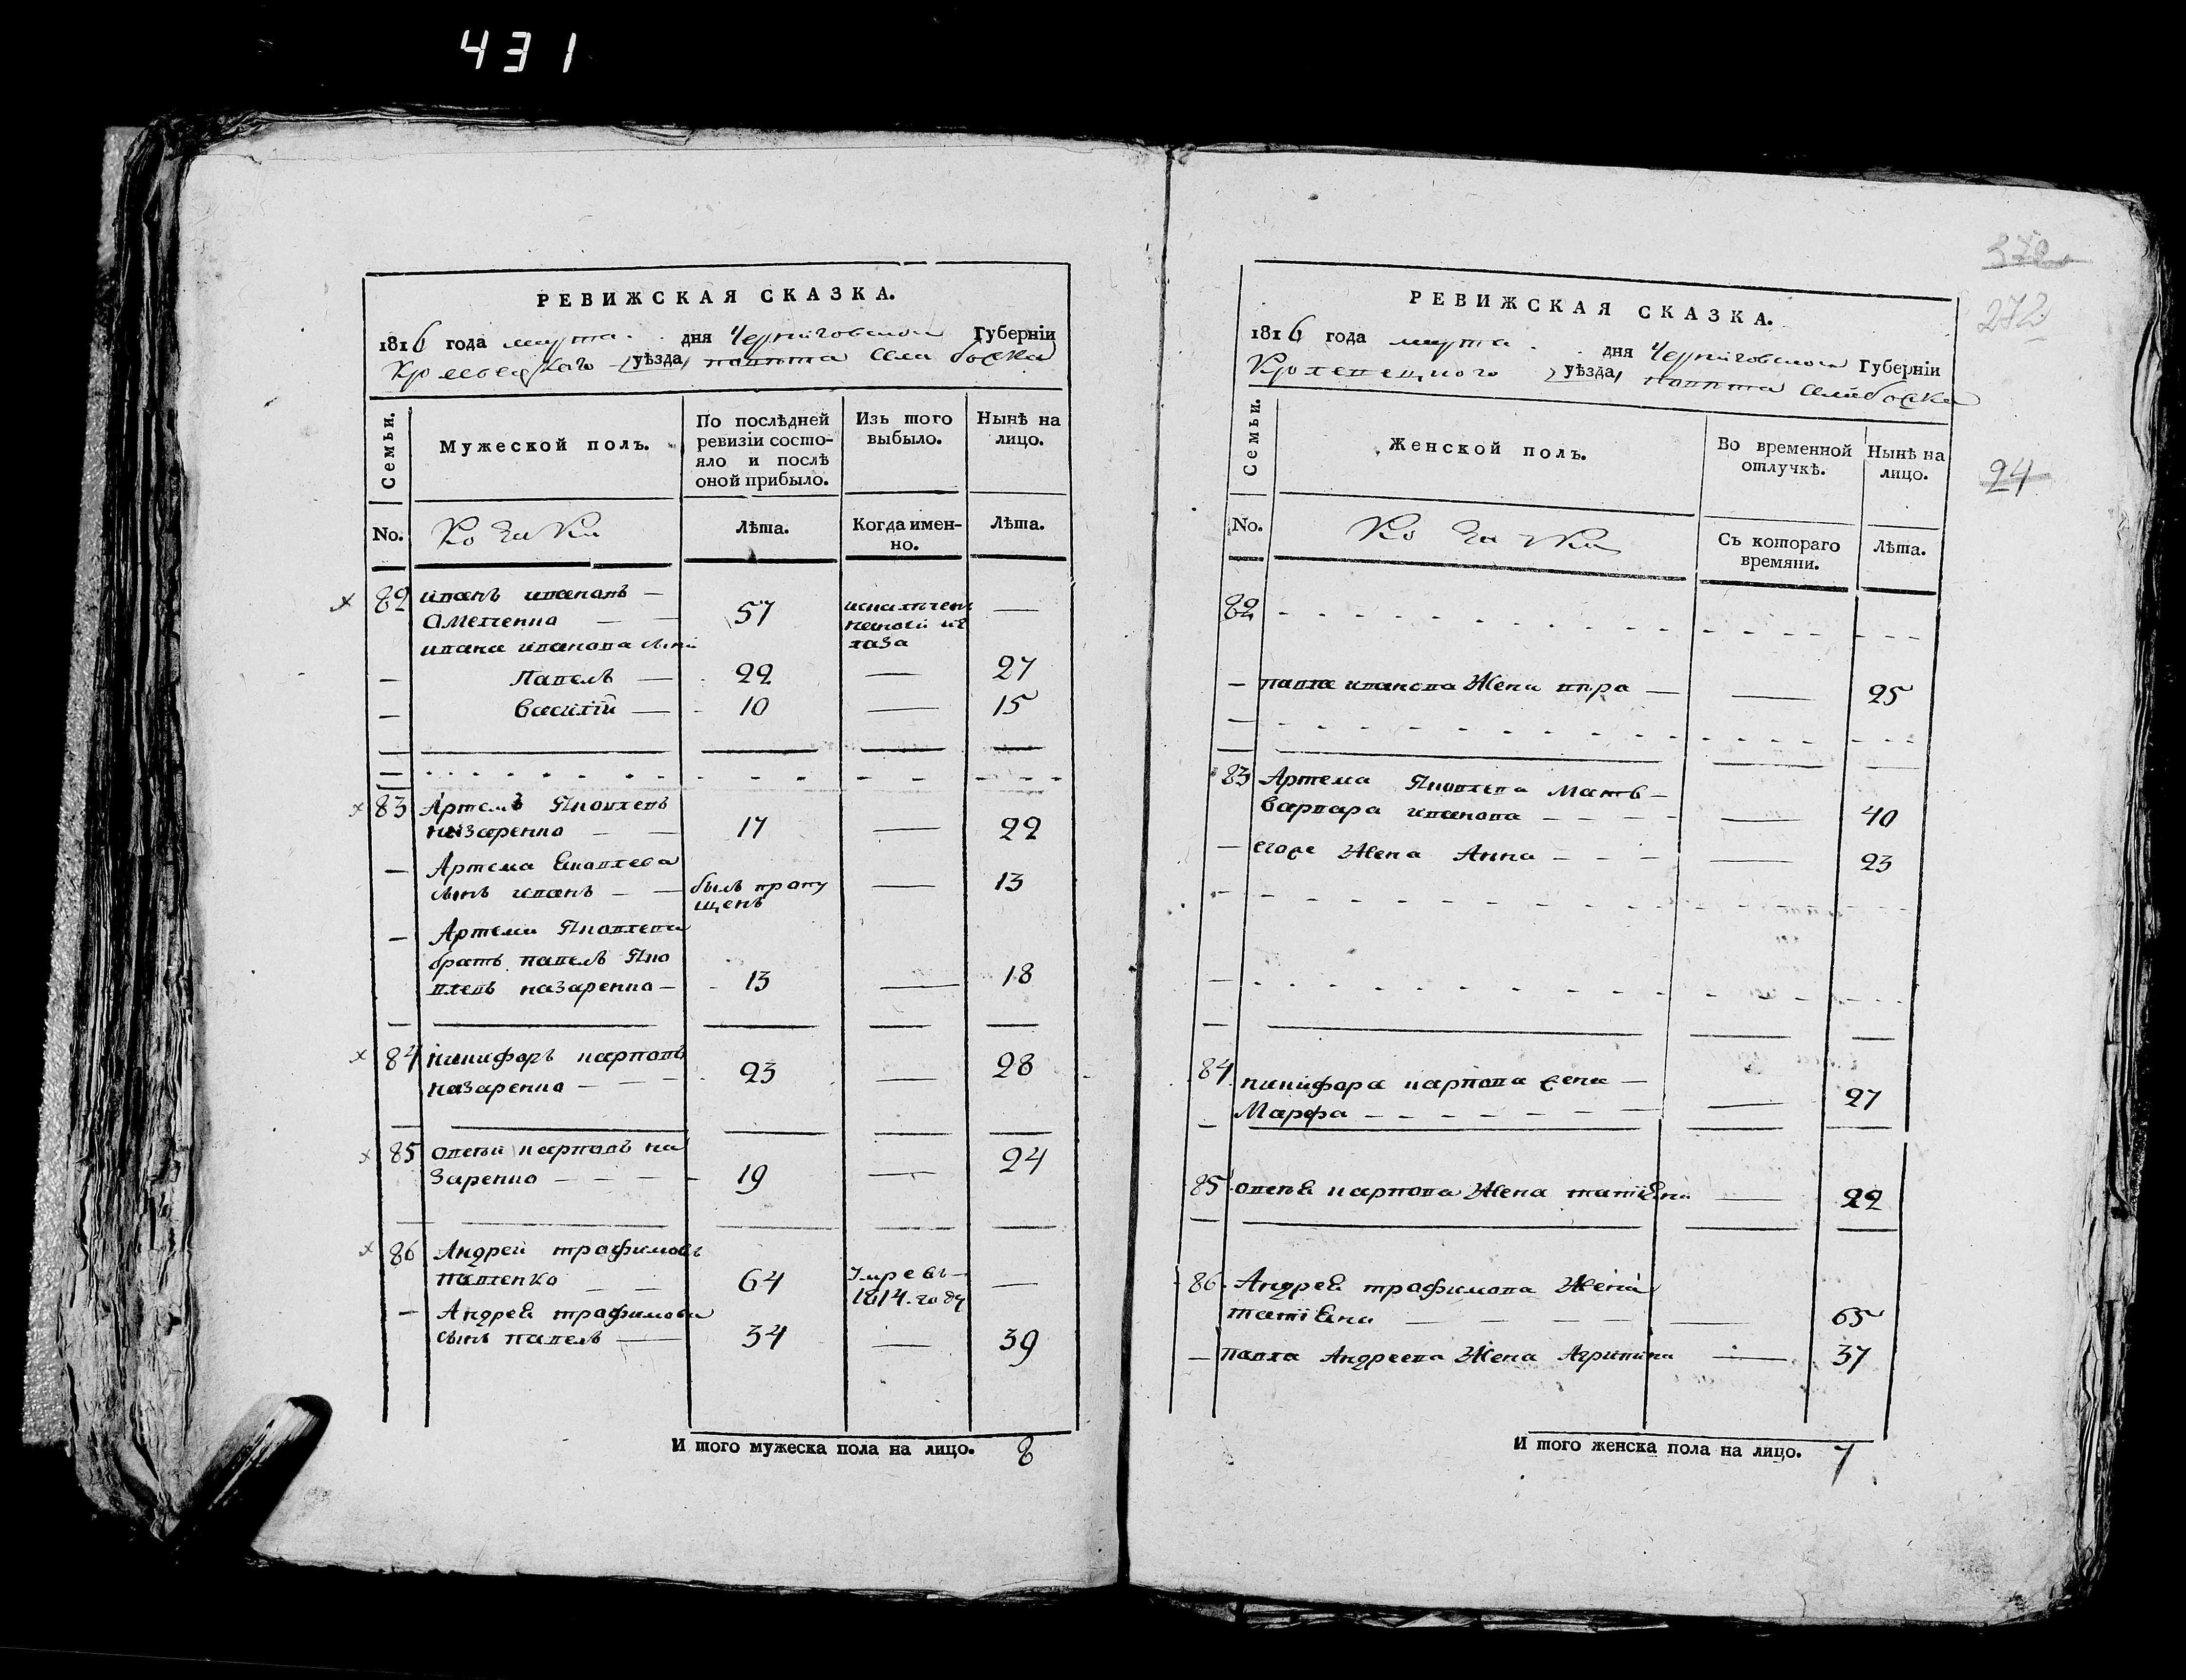 431
РЕВИЖСКАЯ СКАЗКА.
1816 года марта дня Черниговской Губернiи
Кролевецкого уѣзда, села
Семьи.
Мужеской полъ.
По послѣдней ревизiи состо-
яло и послѣ
оной прибыло.
Изъ того
выбыло.
Нынѣ на
лицо.
No.
Козаки
Лѣта.
Когда имен-
но.
Лѣта.
82 иванъ ивановъ —
57 —
ивана иванова
— Павелъ — 22 — 27
— василiй — 10 — 15
83 Артемъ Яковлевъ
назаренко — — 17 — 22
— Артема Яковлева
сынъ иванъ — — былъ пропу
щенъ — 13
— Артема Яковлева
братъ павелъ Яко
влевъ назаренко — 13 — 18
84 никифоръ карповъ
назаренко — — — 23 — 28
85 карповъ на
заренко — — — — 19 — 24
86 Андрей трофимовъ
64 умре въ
1814. году —
— Андрея трофимова
сынъ павелъ — 34 — 39
И того мужеска пола на лицо. 8
372
272
РЕВИЖСКАЯ СКАЗКА.
1816 года марта дня Черниговской Губернiи
Кролевецкого уѣзда, села
Семьи.
Женской полъ.
Во временной
отлучкѣ.
Нынѣ на
лицо.
94
No.
Козачки
Съ котораго
времяни.
Лѣта.
82
— павла иванова жена — — 25
83 Артема Яковлева мать —
варвара иванова — — — — — 40
— егоже жена Анна — — — — 23
84 никифора карпова жена —
Марфа — — — — — — — 27
85 карпова жена татiяна — 22
86 Андрея трофимова жена
татiяна — — — — — 65
— павла Андреева жена Агрипина — 37
И того женска пола на лицо. 7